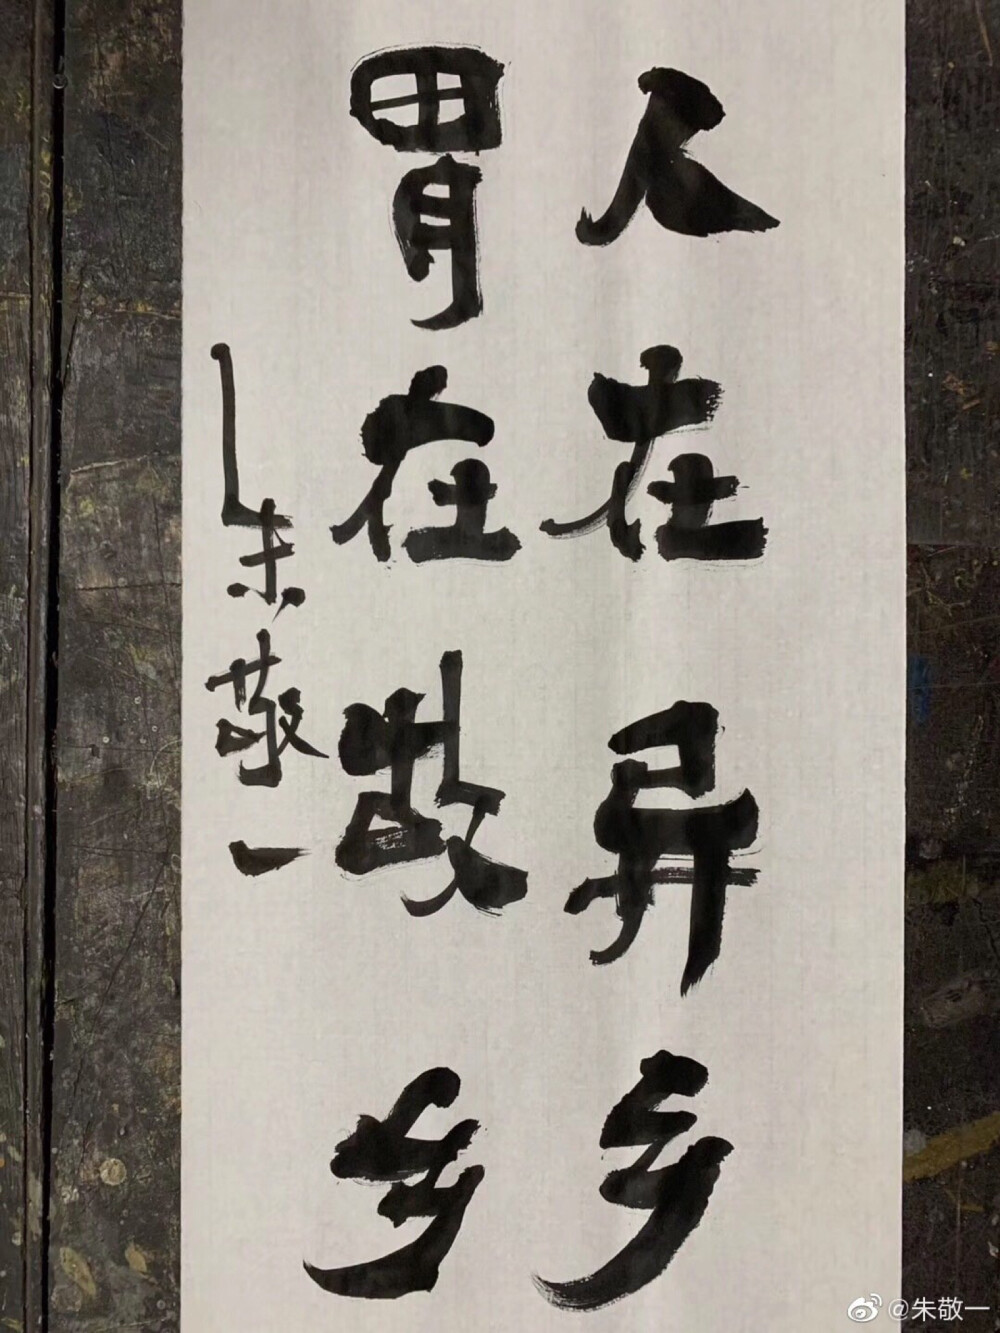 人在异乡
胃在故乡
朱敬一
@朱敬一